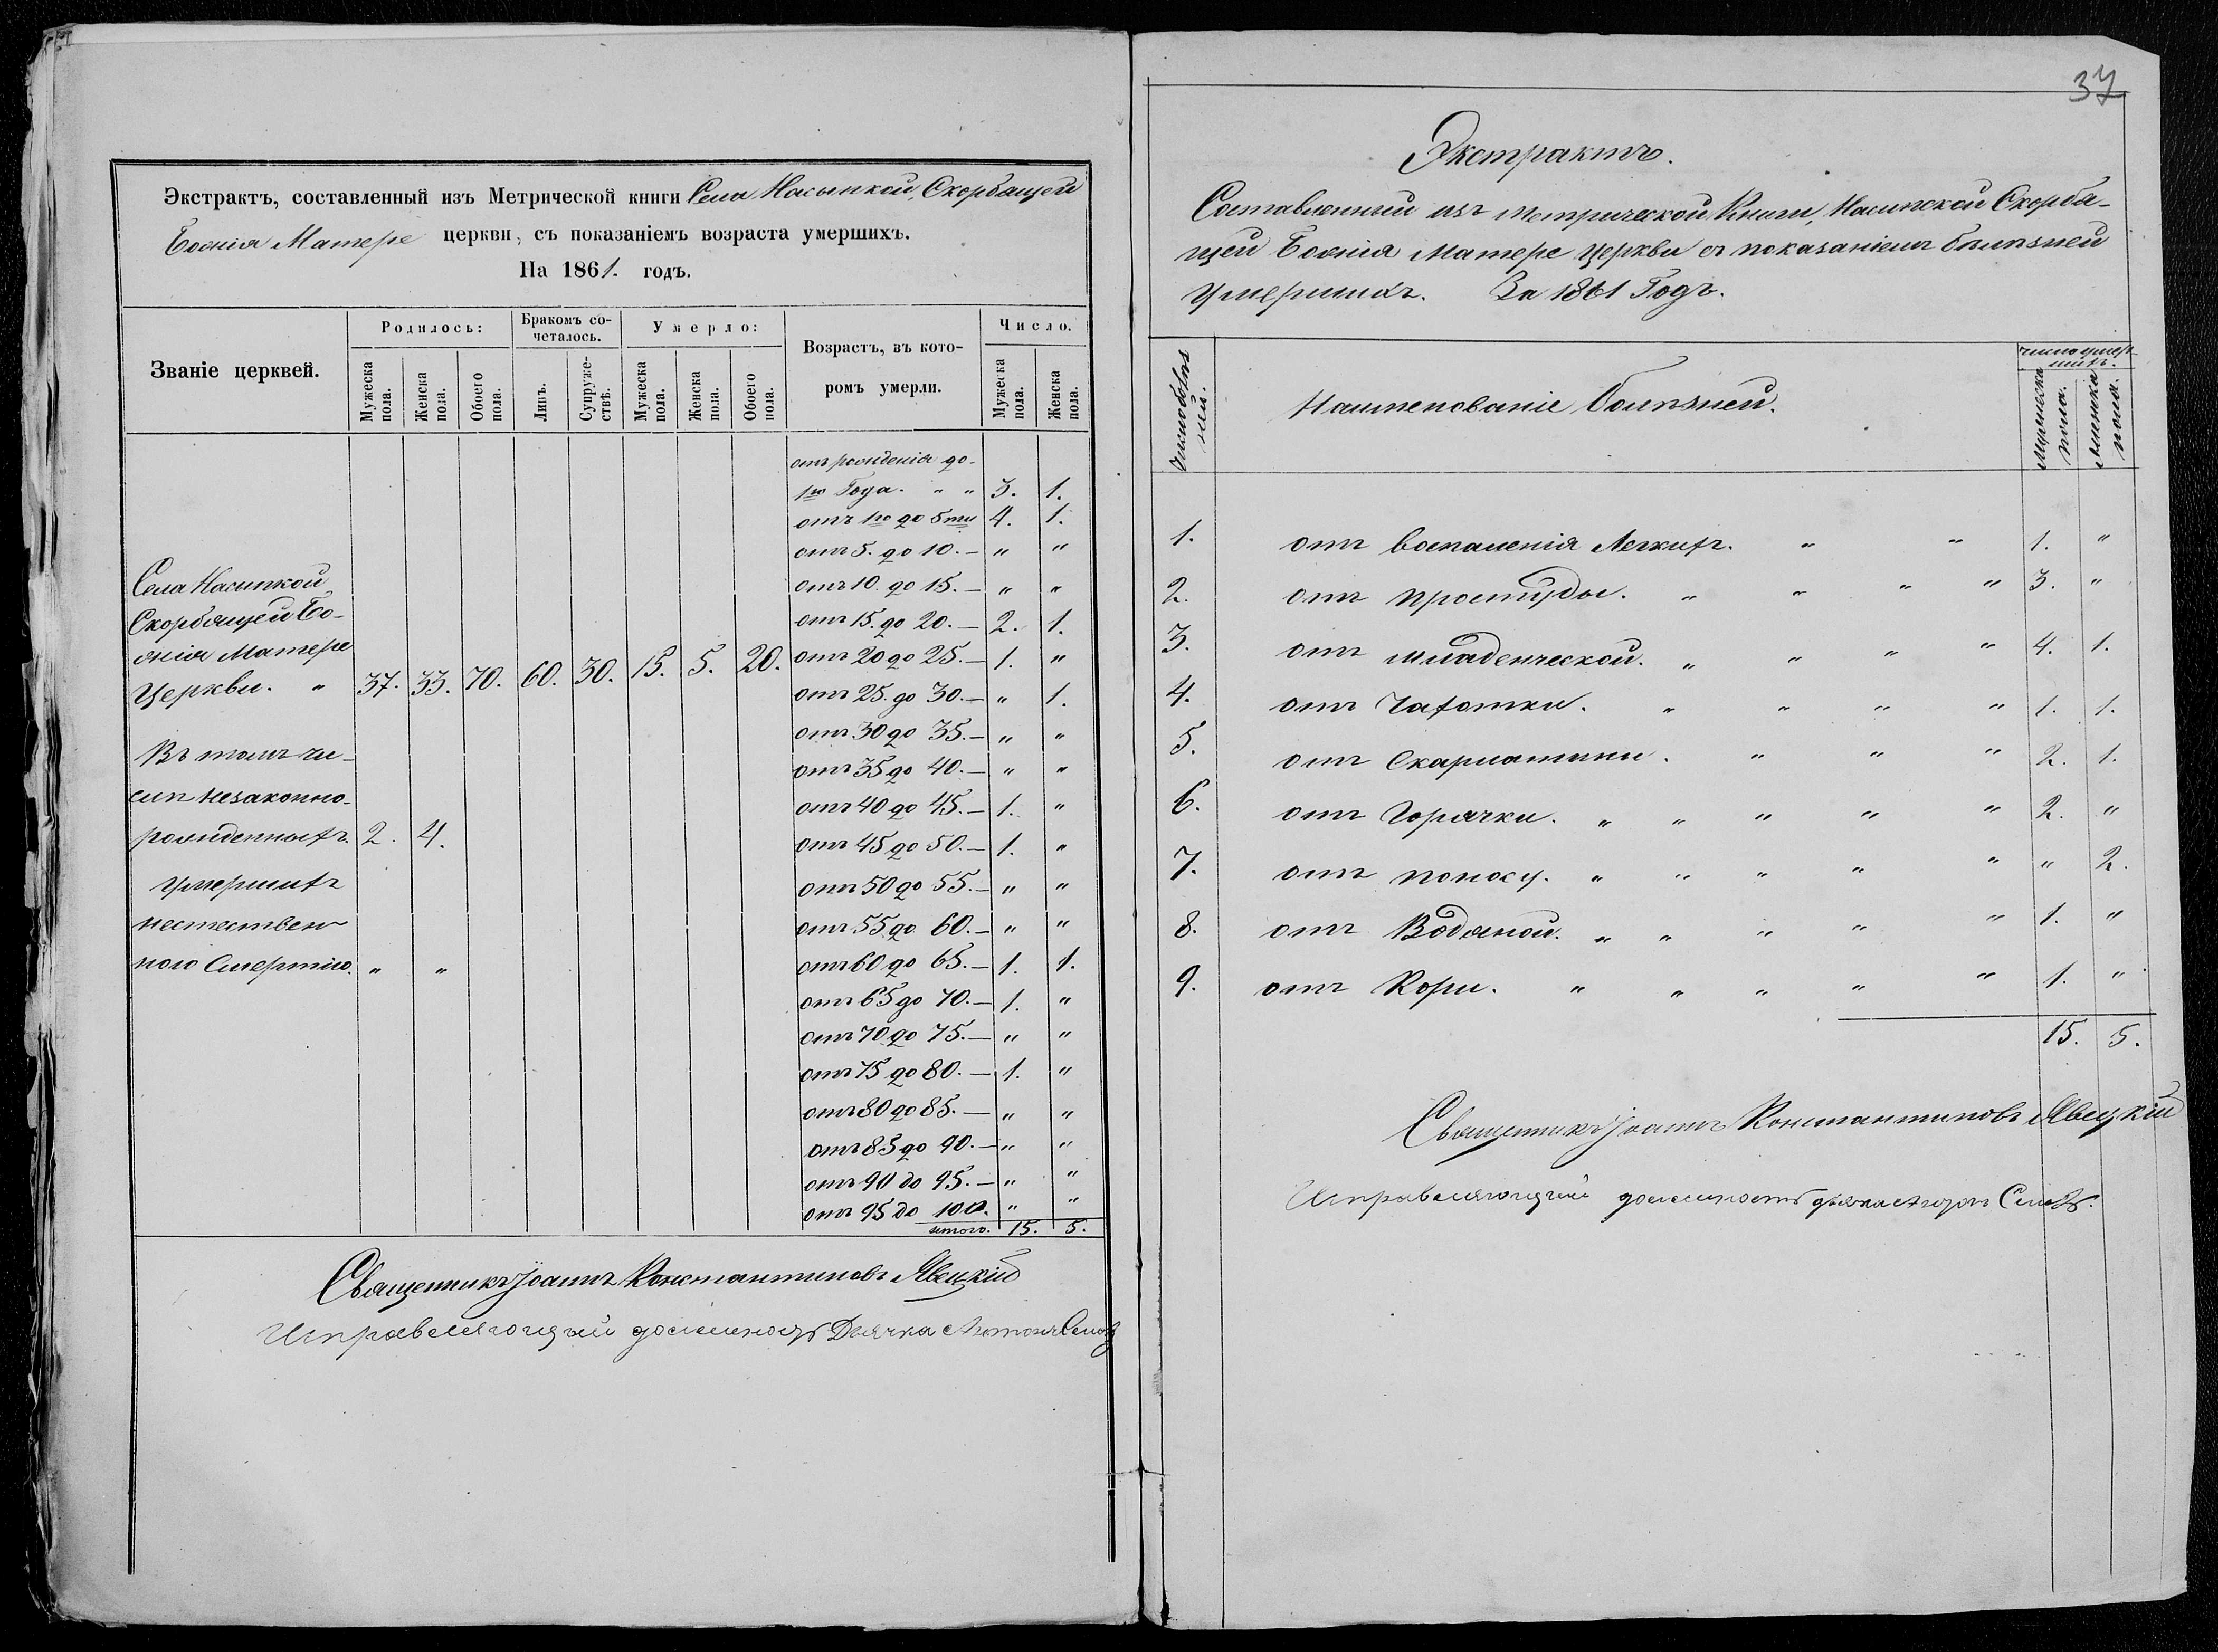 Экстрактъ, составленный изъ Метрической книги Села Насыпкой, Скорбящей
Божія Матере церкви, съ показаніемъ возраста умершихъ.
На 1861. годъ.
Званіе церквей.
Родилось:
Бракомъ со-
четалось.
Умерло:
Возрастъ, въ кото-
ромъ умерли.
Число.
Мужеска пола.
Женска пола.
Обоего пола.
Лицъ.
Супруже-
ствъ.
Мужеска пола.
Женска пола.
Обоего пола.
Мужеска пола.
Женска пола.
отъ рожденія до
1го Года. " " 3. 1.
отъ 1го до 5ти 4. 1.
отъ 5. до 10. — " "
отъ 10. до 15. — " "
отъ 15. до 20. — 2. 1.
отъ 20 до 25. — 1. "
отъ 25. до 30. — " 1.
отъ 30 до 35. — " "
отъ 35 до 40. — " "
отъ 40 до 45. — 1. "
отъ 45 до 50. — 1. "
отъ 50 до 55. — " "
отъ 55 до 60. — " "
отъ 60 до 65. — 1. 1.
отъ 65 до 70. — 1. "
отъ 70 до 75. — " "
отъ 75 до 80. — 1. "
отъ 80 до 85. — " "
отъ 85 до 90. — " "
отъ 90 до 95. — " "
отъ 95 до 100. " "
итого. 15. 5.
Села Насыпкой
Скорбящей Бо-
жія Матере
Церкви. " 37. 33. 70. 60. 30. 15. 5. 20.
Въ томъ чи-
слѣ незаконно-
рожденныхъ. 2. 4.
Умершихъ
неестествен
ною Смертію. " "
Священникъ Іоаннъ Константиновъ Явецкій
Исправляющій должность Дьячка Антонъ
37
Экстрактъ.
Составленный изъ Метрической Книги, Насыпской Скорбя-
щей Божія Матере Церкви съ показаніемъ болѣзней
Умершихъ. За 1861 Годъ.
Число болѣз
ней.
Наименованіе болѣзней.
число умер-
шихъ.
Мужеска пола.
Женска пола.
1. отъ воспаленія Легкихъ. " " 1. "
2. отъ простуды. " " " " 3. "
3. отъ младенческой. " " " " 4. 1.
4. отъ Чахотки. " " " " 1. 1.
5. отъ Скарлатины. " " " 2. 1.
6. отъ Горячки. " " " " " 2. "
7. отъ поносу. " " " " " " 2.
8. отъ Водяной. " " " " " 1. "
9. отъ Кори. " " " " " 1. "
15. 5.
Священникъ Іоаннъ Константиновъ Явецкій
Исправляющій должность дьячка